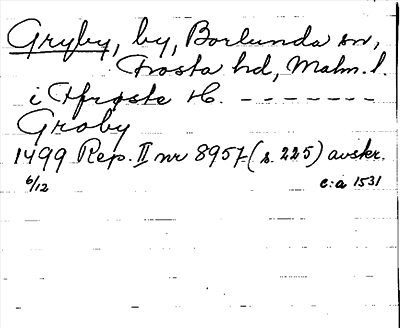 Gryby, by, Borlunda sn,
Frosta hd, Malm. l.
i Ffrøste H. - - - - - - -
Groby
1499 Rep. II nr 8957 (s. 225) avskr.
6/12 c:a 1531